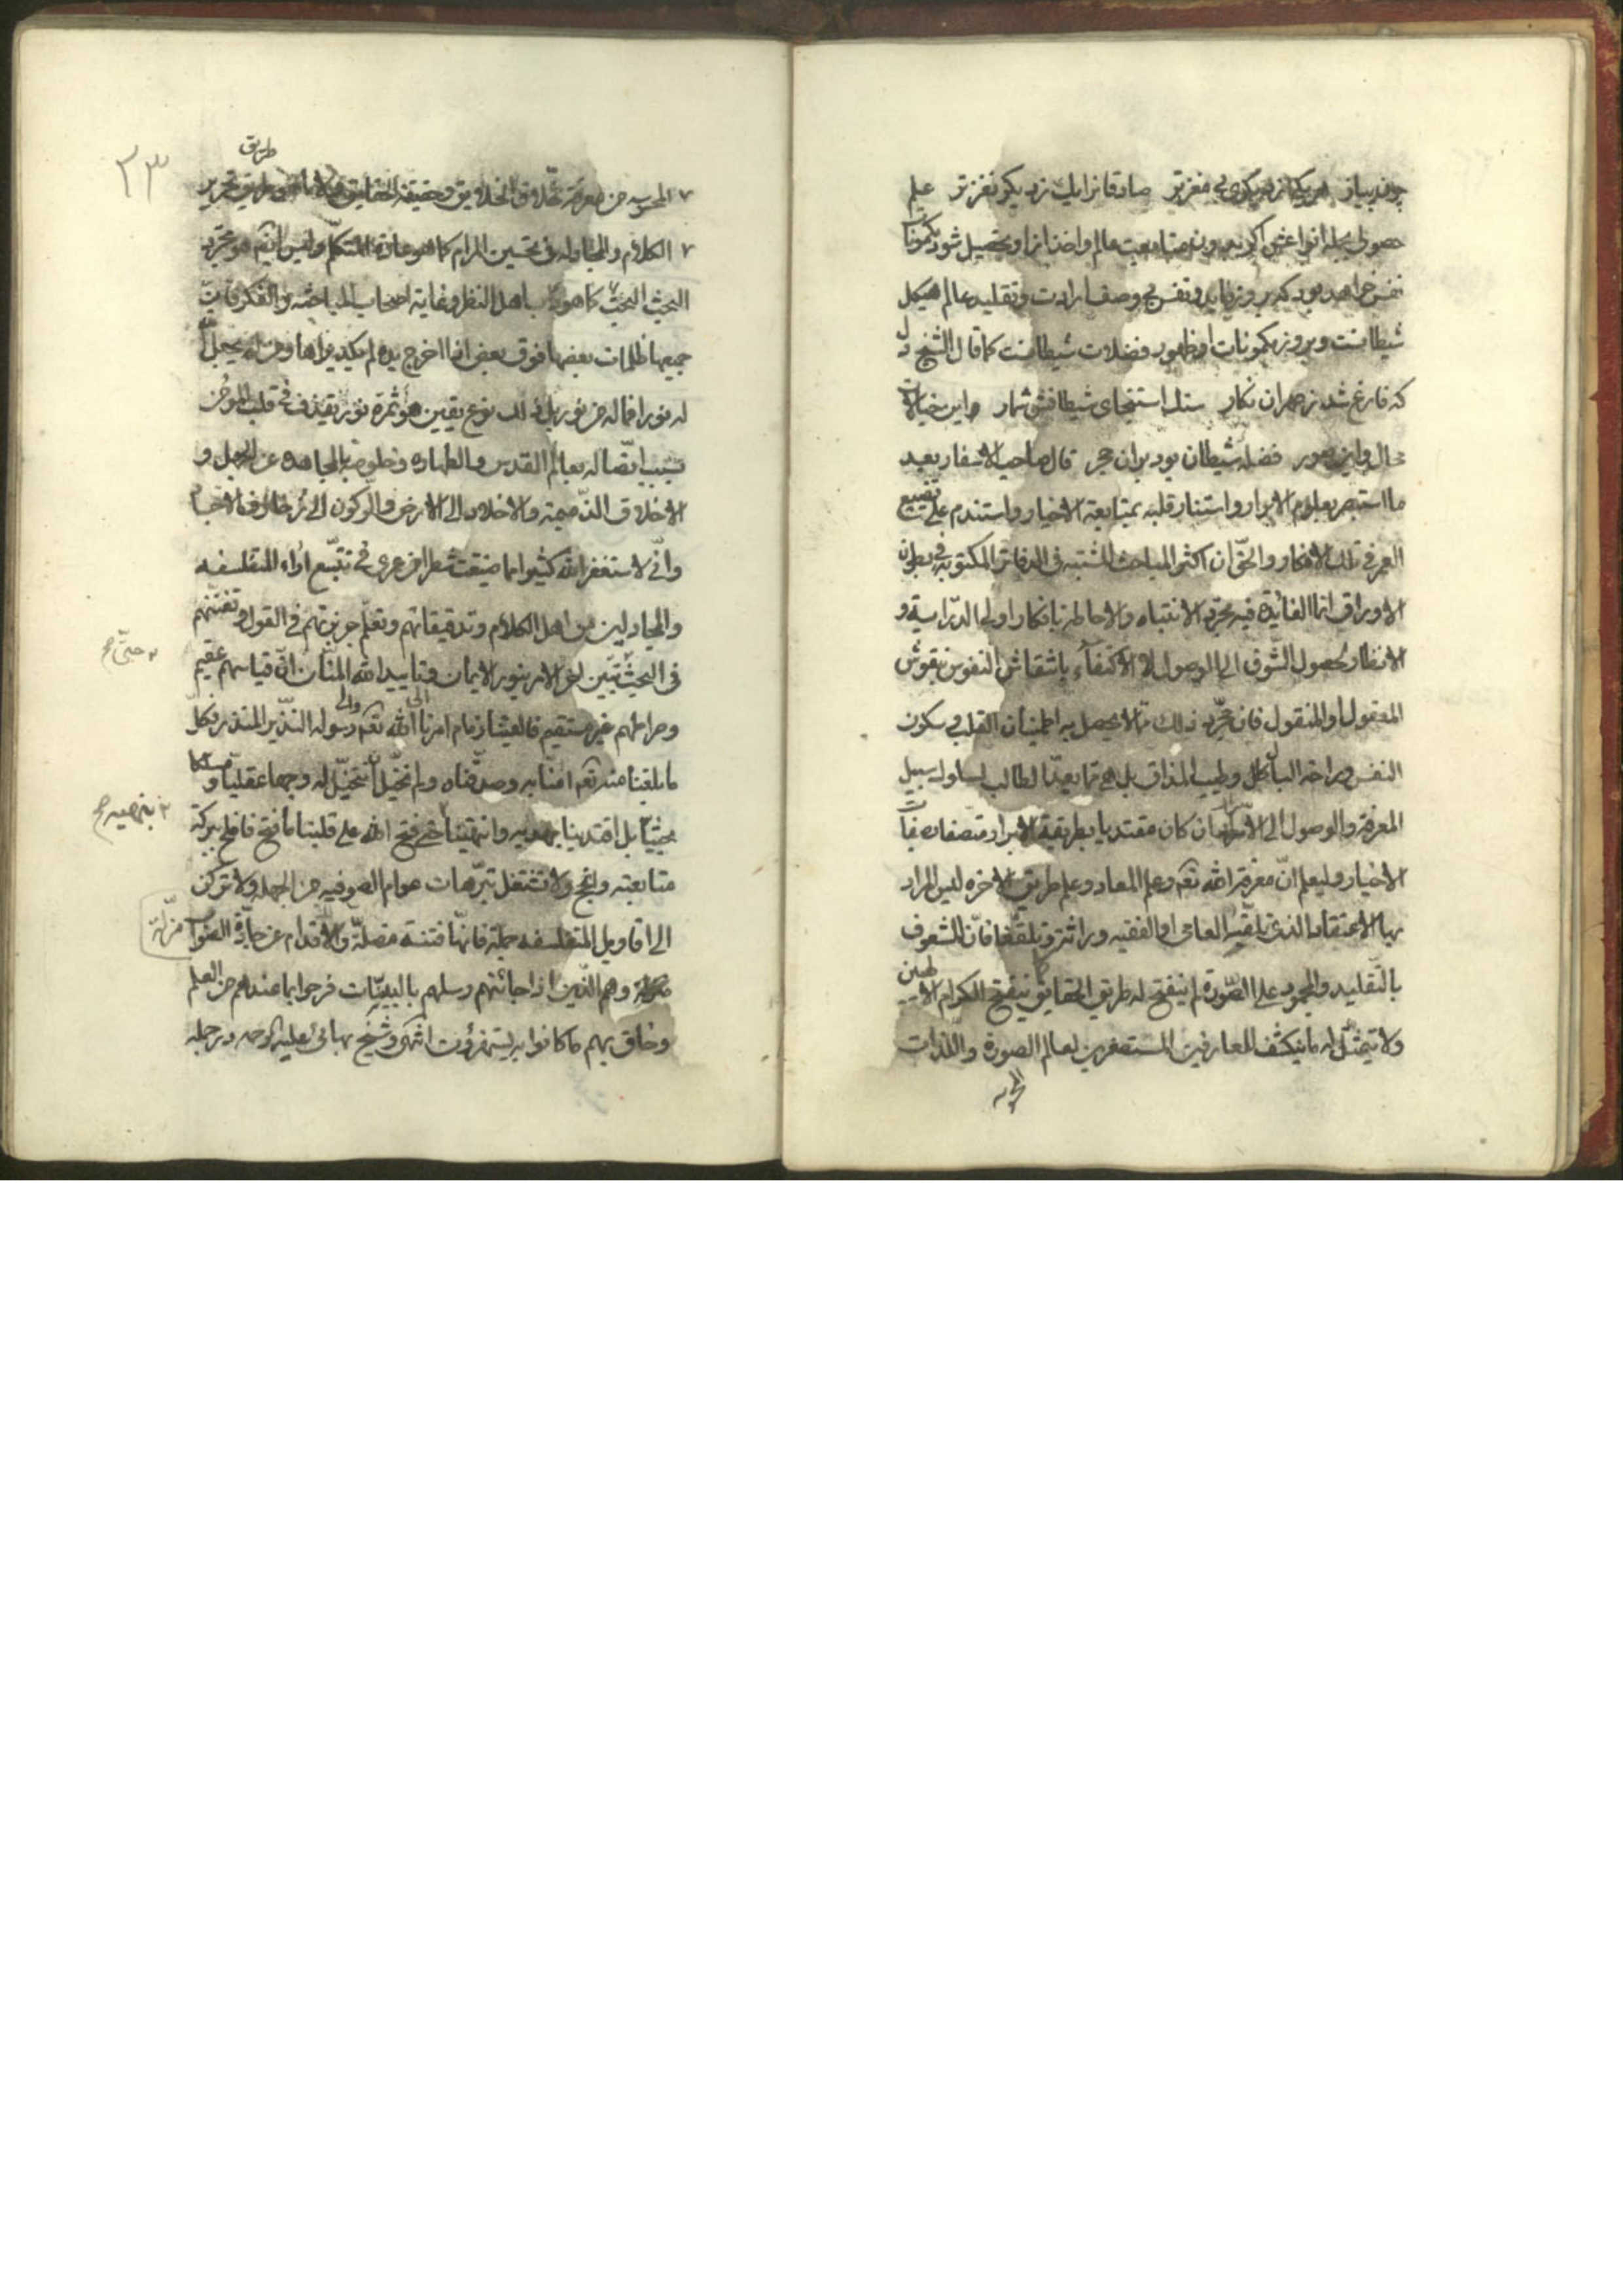 چون پیاز هر یکی از دیگری بی مغزتر صادقانرا یک ز دیگر نغزتر علم
حصولی بجمله انواعش اگر بدون متابعت عالم و اخذ از او تحصیل شود مکمونات
نفس خواهد بود که بروز نماید و نفس بی وصف ارادت و تقلید عالم هیکل
شیطانست و بروز مکمونات او ظهور فضلات شیطانست کما قال الشیخ ره
که فارغ شد ز همران نکار سنك استنجای شیطانش شمار و این خیالات
محال و این صور فضله شیطان بود بر ان حجر قال صاحب الاسفار بعد
ما استبصر بعلوم الابرار و استنار قلبه بمتابعة الاخیار و استندم علی تضییع
العمر فی تلك الافکار والحقّ ان اکثر المباحث المثبتة فی الدفاتر المکتوبة فی بطون
الاوراق انما الفائدة فیه مجرّد الانتباه والاحاطة بافکار اولی الدّرایة و
الانظار لحصول الشّوق الی الوصول لا الاکتفاء بانتقاش النفوس بنقوش
المعقول او المنقول فان مجرّد ذلك ممّا لا یحصل به اطمینان القلب و سکون
النفس و راحة البال و طیب المذاق بل هی ممّا یعدّ الطالب لسلوك سبیل
المعرفة والوصول الی الاسرار ان کان مقتدیا بطریقة الابرار متصفا بصفات
الاخیار و لیعلم انّ معرفة الله تعم و علم المعاد و علم طریق الاخره لیس المراد
بها الاعتقاد الذی تلقّیه العامی او الفقیه وراثة و تلقّفا فانّ المشعوف
بالتقلید والجمود علی الصّورة لم ینفتح له طریق الحقائق کما ینفتح للکرام الالهیین
ولا یتمثّل له ما ینکشف للعارفین المستصغرین لعالم الصورة واللذات
المحسوسه
۲۳
طریق
المحسوسه من معرفة خلاق الخلایق و حقیقة الحقایق ولا ما هو طریق تحریر
الکلام والمجادلة فی تحسین المرام کما هو عادة المتکلّم ولیس ایضم هو مجرّد
البحث البحت کما هو داب اهل النظر و غایة اصحاب المباحثه والفکر فانّ
جمیعها ظلمات بعضها فوق بعض اذا اخرج یده لم یکد یراها و من لم یجعل الله
له نورا فما له من نور بل ذلك نوع یقین هو ثمرة نور یقذف فی قلب المؤمن
بسبب اتّصاله بعالم القدس والطهاره و خلوصه بالمجاهده عن الجهل و
الاخلاق الذّمیمة والاخلاد الی الارض والرّکون الی زخارف الاجسا
وانّی لاستغفر الله کثیرا مما ضیّعت شطرا من عمری فی تتبّع اراء المتفلسفه
والمجادلین من اهل الکلام و تدقیقاتهم و تعلّم جربزتهم فی القول و تفنّنهم
فی البحث تبیّن لی اخر الامر بنور الایمان و تایید الله المنّان انّ قیاسهم عقیم
حتّی صح
و صراطهم غیر مستقیم فالقینا زمام امرنا الی الله تعم و الی رسوله النّذیر المنذر فکلّ
ما بلغنا منه تعم امنّا به و صدّقناه و لم نحتل ان نتخیّل له وجها عقلیّا و مسلکا
بحثیّا بل اقتدینا بهدیه وانتهینا حتی فتح الله علی قلبنا ما فتح فافلح ببرکة
بنهیه صح
متابعته وانجح ولا تشتغل بترّهات عوام الصوفیه من الجهله ولا ترکن
الی اقاویل المتفلسفه جملة فانّها فتنة مضلّة وللاقدام عن جادّة الصّواب
مزلّة
و هم الّذین اذا جائتهم رسلهم بالبینّات فرحوا بما عندهم من العلم
وحاق بهم ما کانوا به یستهزؤن انتهی و شیخ بهائی علیه الرحمه در جمله